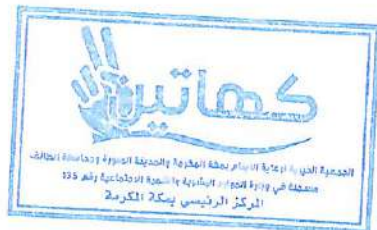 كهاتين
الجمعية الخيرية لرعاية الأيتام بمكة المكرمة والمدينة المنورة ومحافظة الطائف
مسجلة في وزارة الموارد البشرية والتنمية الاجتماعية رقم 135
المركز الرئيسي بمكة المكرمة